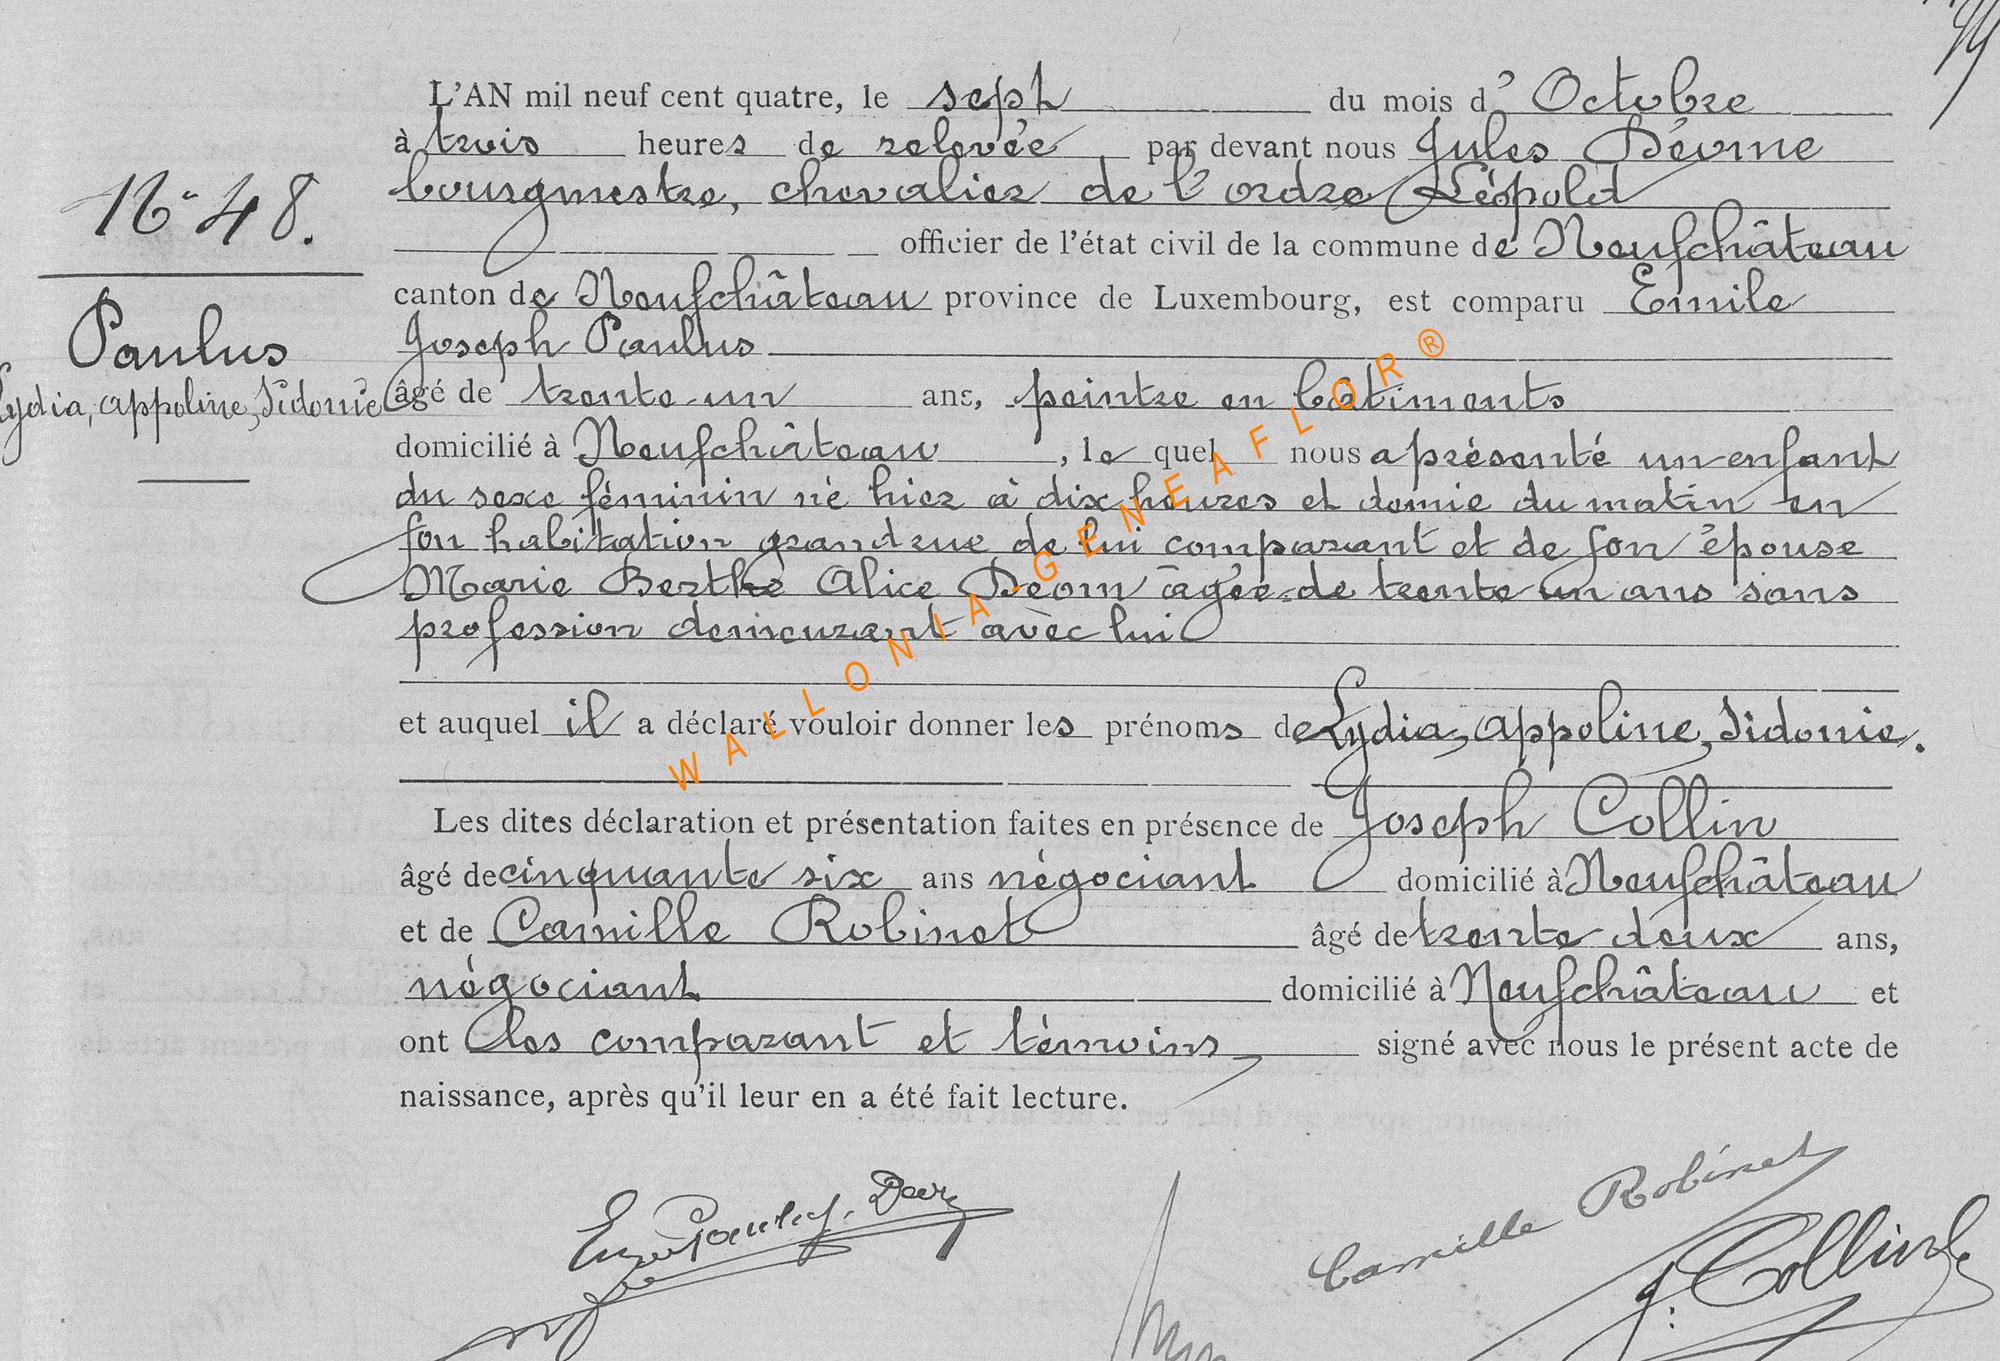 L'AN mil neuf cent quatre, le sept du mois d'Octobre
à trois heures de relevée, par devant nous Jules
bourgmestre, chevalier de l'ordre Léopold
officier de l'état civil de la commune de Neufchâteau
canton de Neufchâteau province de Luxembourg, est comparu Emile
Joseph Paulus
âgé de trente-un ans, peintre en bâtiments
domicilié à Neufchâteau, le quel nous a présenté un enfant
du sexe féminin né hier à dix heures et demie du matin en
son habitation grand rue de lui comparant et de son épouse
Marie Berthe Alice Déom âgée de trente un ans sans
profession demeurant avec lui
et auquel il a déclaré vouloir donner les prénoms de Lydia, Appoline, Sidonie.
Les dites déclaration et présentation faites en présence de Joseph Collin
âgé de cinquante six ans négociant domicilié à Neufchâteau
et de Camille Robinet âgé de trente deux ans,
négociant domicilié à Neufchâteau et
ont les comparant et témoins signé avec nous le présent acte de
naissance, après qu'il leur en a été fait lecture.
No 48.
Paulus
Lydia, Appoline, Sidonie
WALLONIA-GENEAFLOR®
Camille Robinet
J. Collin